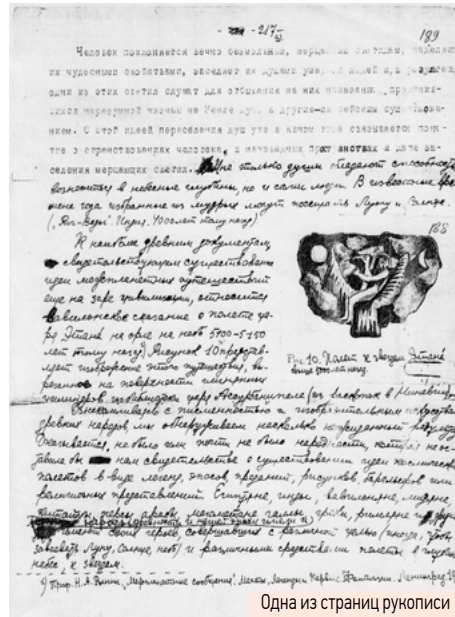 - 217 -
189
Человек поклоняется вечно безмолвным, мерцающим светилам, наделяет
их чудесными свойствами, заселяет их душами умерших людей и, в результате,
одни из этих светил служат для отбывания на них наказания,
неразумной жизнью на Земле душ, а другие - райским существова-
нием. С этой идеей переселения душ уже в какой то связывается поня-
тие о странствованиях человека в межзвездных пространствах и даче за-
селения мерцающих светил. Не только душам придают способность
возноситься в небесные глубины, но и сами люди. В известное вре-
мена года избранные из мудрых могут посещать Луну и Солнце.
("Риг-Веды" Индия. 4000 лет тому назад)
К наиболее древним документам,
свидетельствующим существование
идеи межпланетных путешествий
еще на заре цивилизации, относится
Вавилонское сказание о полете ца-
ря Этана на орле на небо 5700-5150
лет тому назад. Рисунок 10 представ-
ляет изображение этого путешествия, вы-
резанное на поверхности глиняных
цилиндров из библиотеки царя Ассурбанипала (из раскопок в Ниневии)
188
Рис 10. Полет к звездам Этана
Ознакомившись с письменностью и изобразительным искусством
древних народов мы обнаруживаем несколько неожиданный результат
Оказывается, не было или почти не было народности, которая не ос-
тавила бы нам свидетельства о существовании идеи космических
полетов в виде легенд, эпосов, преданий, рисунков, барельефов или
религиозных представлений. Египтяне, индусы, вавилоняне, иудеи,
китайцы, персы, арабы, греки, римляне и другие
народы
имеют своих героев, совершавших с различной целью (иногда, чтобы
завоевать Луну, Солнце, небо) и различными средствами полеты в глубины
небес, к звездам.
9) Проф. Н. А. Рынин. "Межпланетные сообщения". Мечты, Легенды и Первые Фантазии. Ленинград, 19
Одна из страниц рукописи